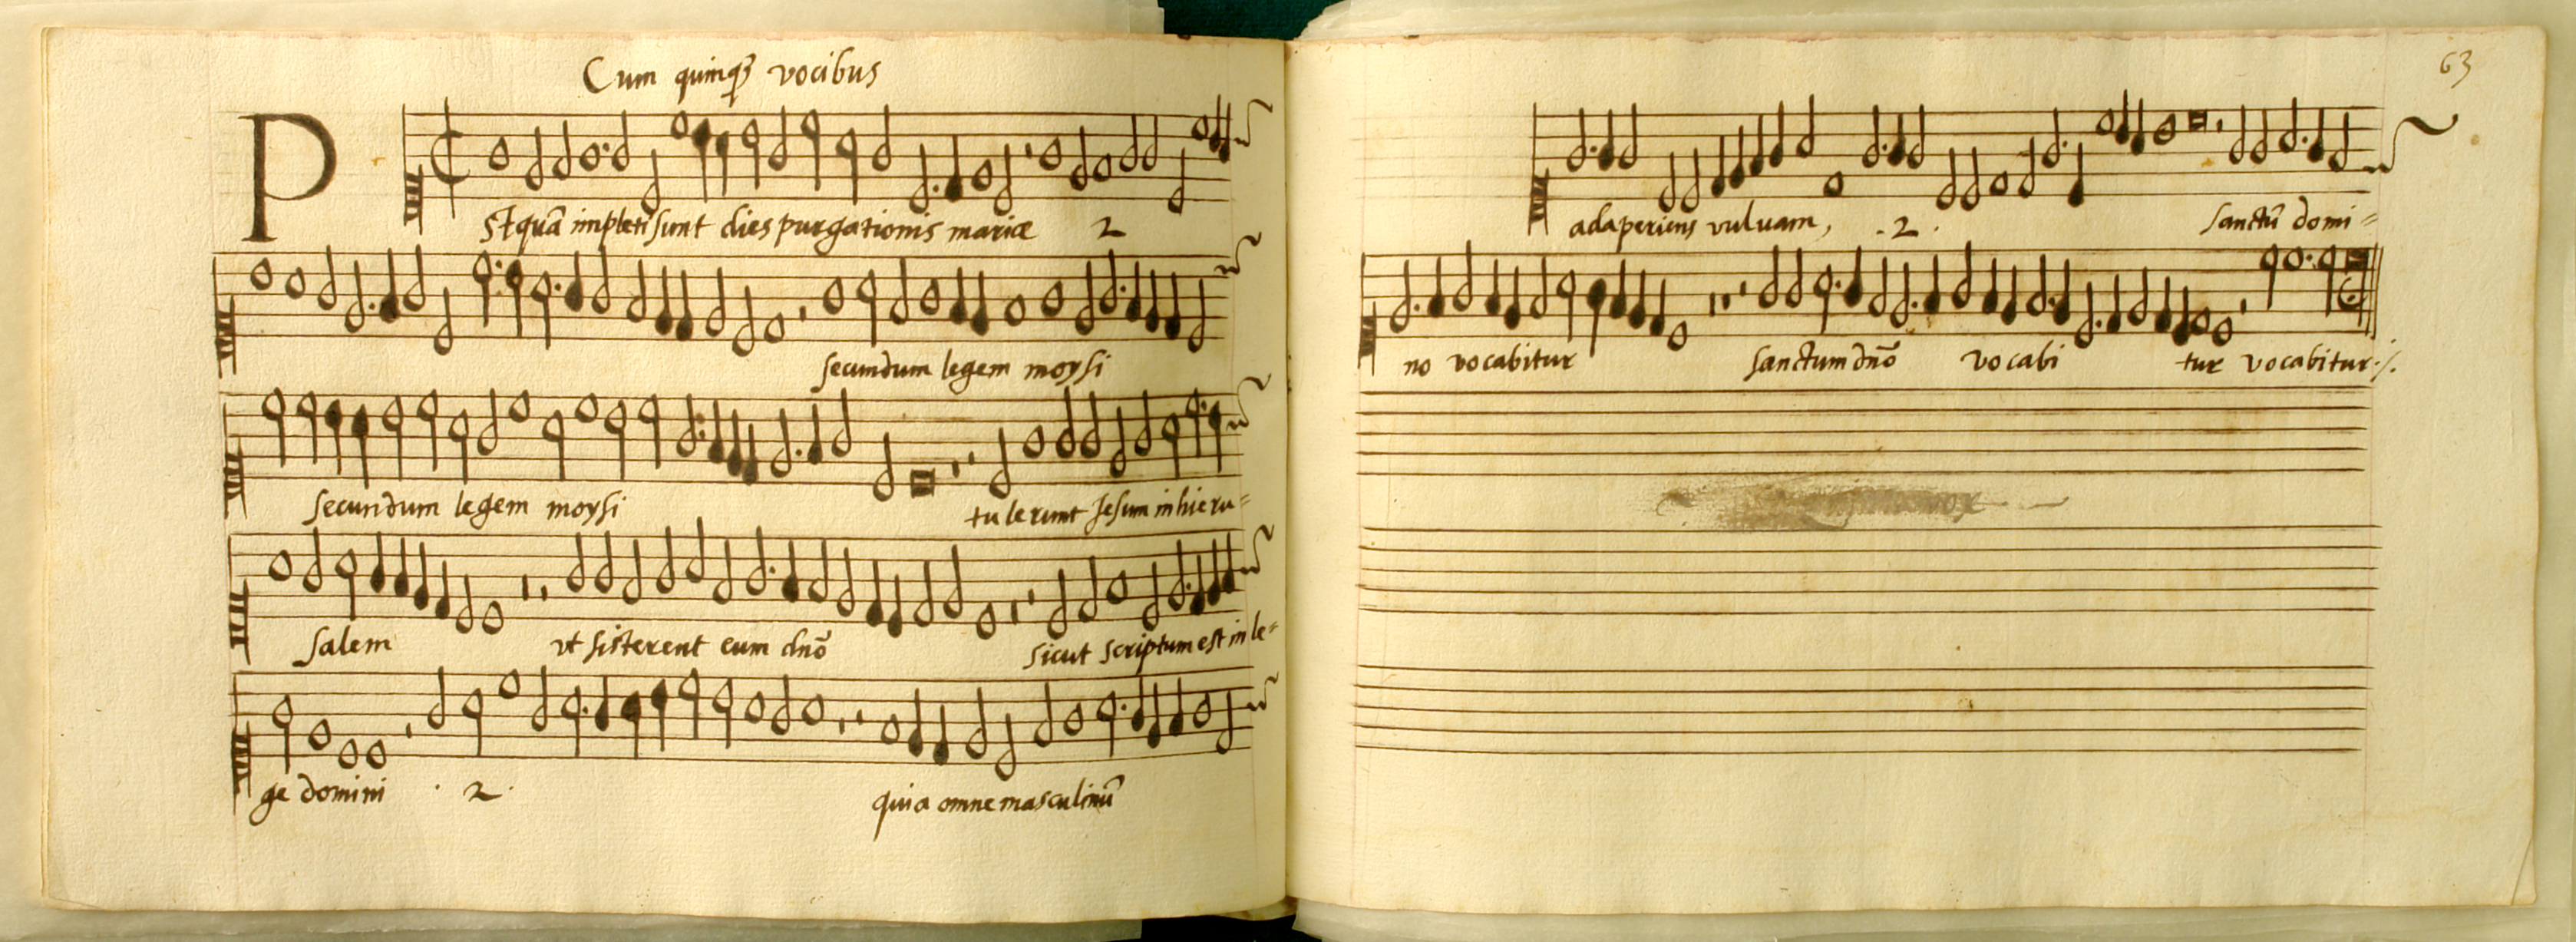 Cum quinq₃ vocibus
P
Stquã impleti sunt dies purgationis mariæ 2
secundum legem moysi
secundum legem moysi
tulerunt Jesum in hieru=
salem vt sisterent eum dnõ sicut scriptum est in le=
ge domini . 2. quia omne masculinũ
63
adaperiens vuluam, .2. sanctũ domi=
no vocabitur sanctum dnõ vocabi tur vocabitur ./.